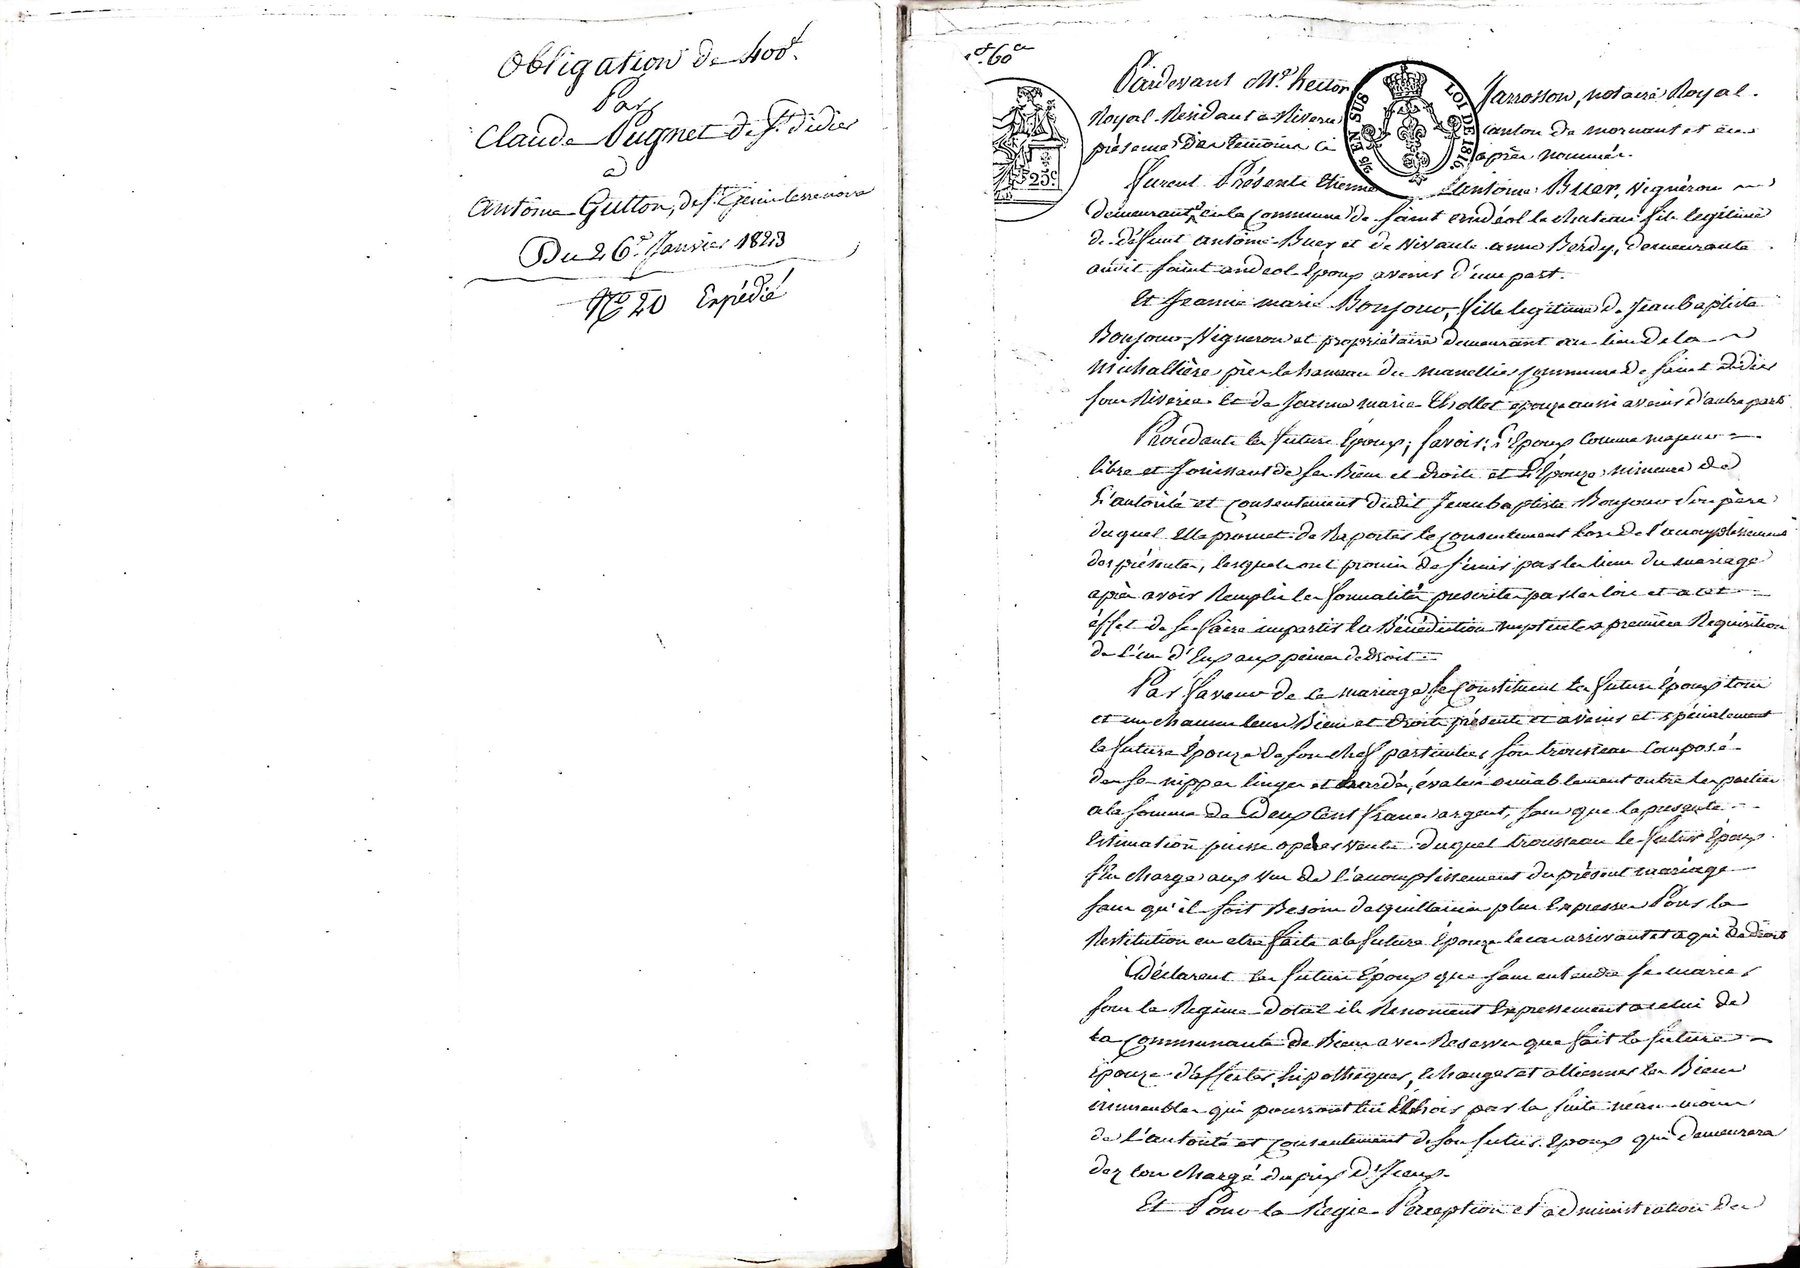 Obligation de 400f.
Par
Claude Pugnet de St. didier
a
antoine Gutton, de St.
Du 26e. Janvier 1823
No 20 Expédié
60c
25c
2/5 EN SUS
LOI DE 1816.
Pardevant Me. hector Jarrosson, notaire Royal.
Royal Residant a Riverie canton de mornant et en
présence des temoins ci après nommés.
furent Présents Etienne antoine Buer, vigneron
demeurant en la commune de saint andéol le chateau fils legitime
de défunt antoine Buer et de vivante anne Berdy, demeurante
audit saint andeol Epoux avenir d'une part.
Et Jeanne marie Bonjour, fille legitime de Jean baptiste
Bonjour Vigneron et propriétaire demeurant au lieu de la
Michallière près le hameau du commune de saint didier
sous Riverie et de Jeanne marie Thollet epouze aussi avenir d'autre part
Procedants les futurs Epoux, savoir; L'Epoux comme majeur
libre et Jouissant de ses Biens et droits et L'Epouze mineure de
L'autorité et consentement dudit Jean baptiste Bonjour son père
duquel Elle promet de Raporter le consentement lors de l'acomplissement
des présentes, lesquels ont promis de s'unir par les liens du mariage
après avoir Remplis les formalités prescrites par les lois et a cet
éffet de se faire impartir la Bénédiction nuptiale a première Requisition
de L'un d'Eux aux peines de droit.
Par faveur de ce mariage se Constituent les futurs Epoux tous
et un chacun leurs Biens et droits présents et avenirs et spécialement
la future Epouze de son chef particulier son trousseau composé
de ses nippes linges et hardes, évalué amiablement entre les parties
a la somme de Deux Cent francs argent, sans que la presente
Estimation puisse opérer vente duquel trousseau le futur Epoux
s'En charge aux vue de l'acomplissement du présent mariage
sans qu'il soit Besoin de quittance plus Expresse Pour la
Restitution en etre faite a la future Epouze le cas arrivant et a qui de droit
Déclarent les futurs Epoux que sans entendre se marier
sous le Regime dotal ils Renoncent Expressement a celui de
la communauté de Biens avec Reserve que fait la future
Epouze d'affecter, hipothequer, Echanger et alliener les Biens
immeubles qui pourront lui Echoir par la suite néan moins
de l'autorité et consentement de son futur Epoux qui demeurera
dez lors chargé du prix D'Iceux.
Et Pour la Regie Perception et administration des